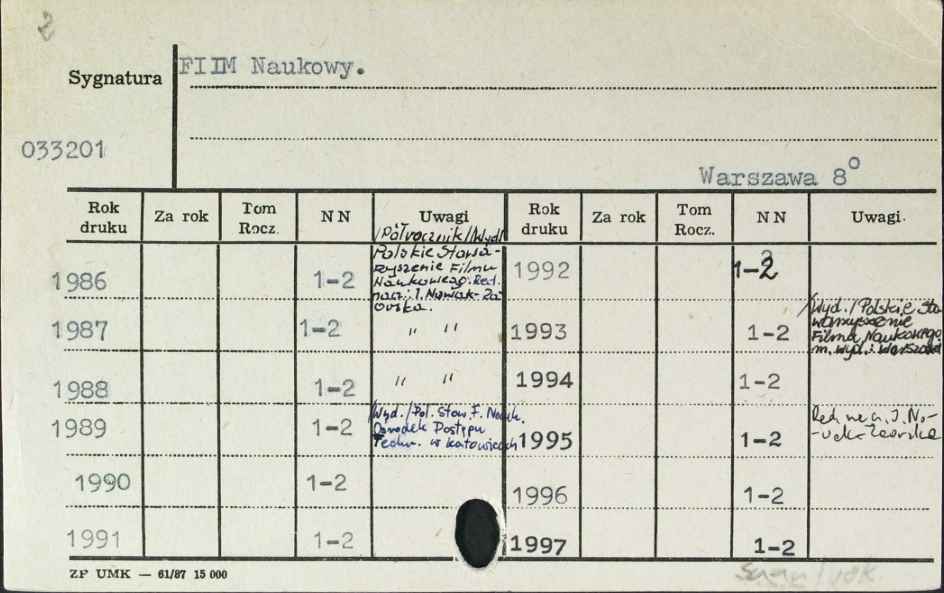 2
Sygnatura
FIIM Naukowy.
033201
Warszawa 8°
Rok druku Za rok Tom Rocz. NN Uwagi Rok druku Za rok Tom Rocz. NN Uwagi.
1986 1-2 /Półrocznik/ /Wyd/
Polskie Stowa-
rzyszenie Filmu
Naukowego. Red.
nacz: I. Nowak-Za
orska.
1992 1-2
1987 1-2 " "
1993 1-2 /Wyd./ Polskie Sto
warzyszenie
Filmu Naukowego.
m. wyd.: Warszawa
1988 1-2 " "
1994 1-2
1989 1-2 /Wyd./ Pol. Stow. F. Nauk.
Ośrodek Postępu
Techn. w Katowicach
1995 1-2 Red. nacz. I. No-
wak-Zaorska
1990 1-2
1996 1-2
1991 1-2
1997 1-2
ZP UMK — 61/87 15 000